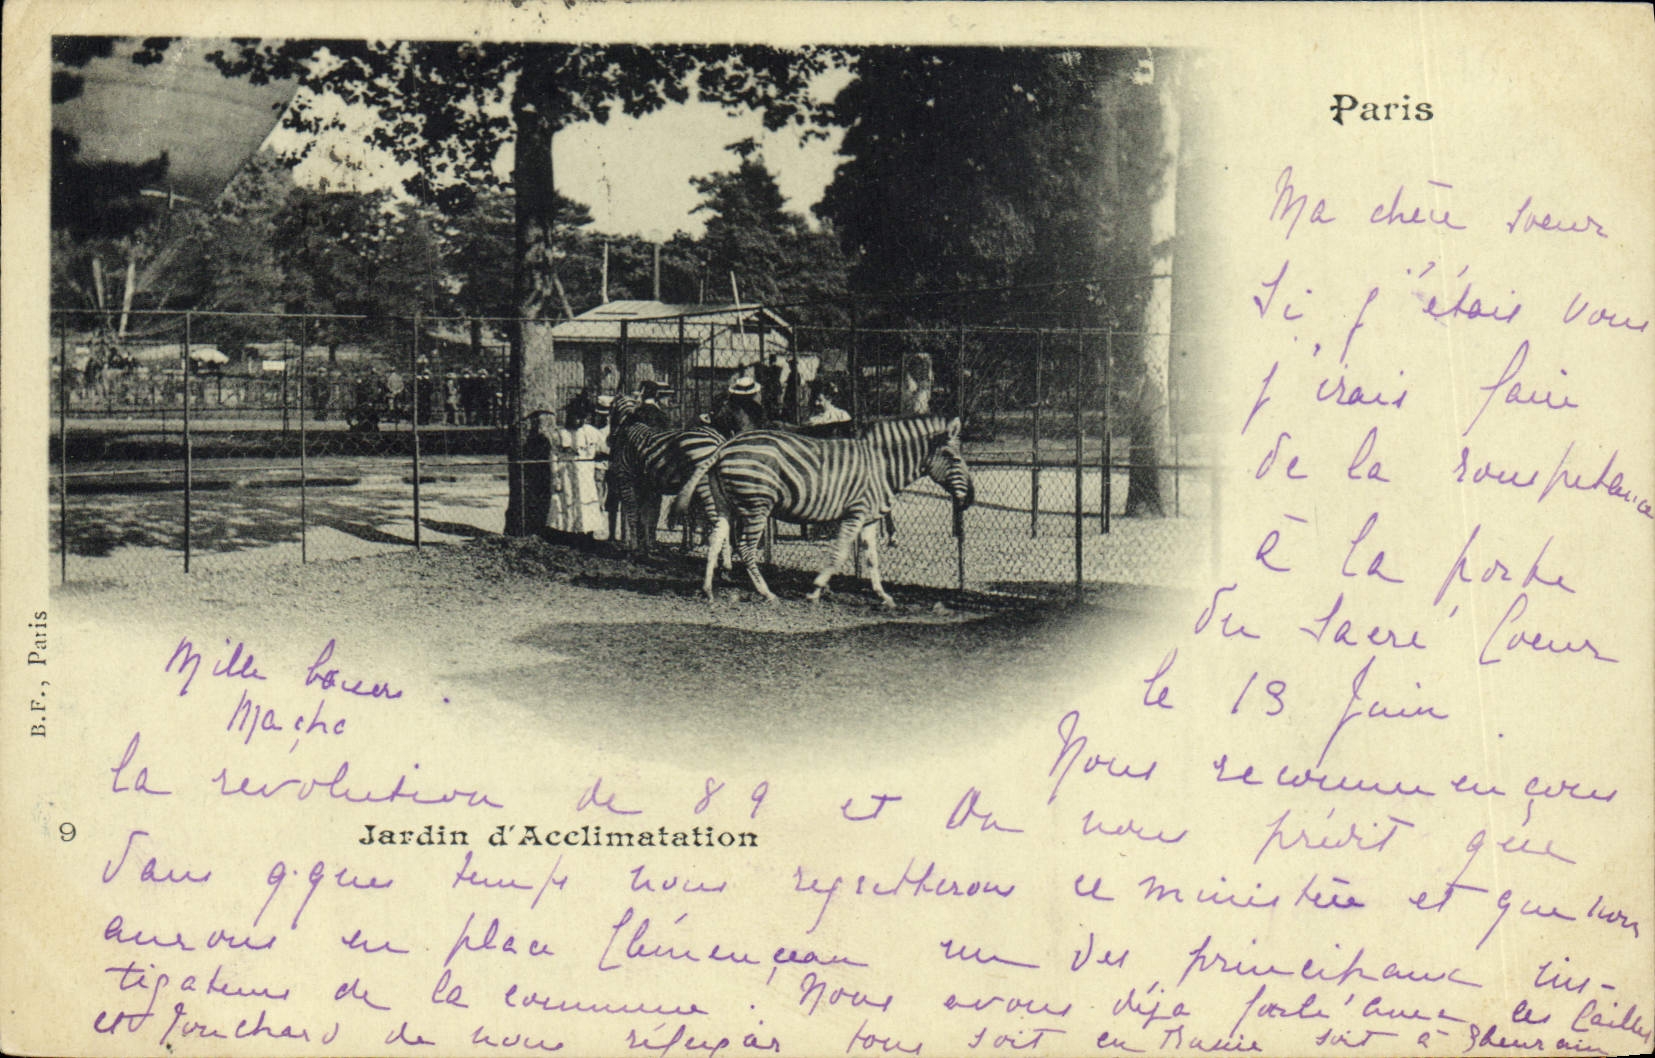 Paris
Ma chère soeur
Si j'étais vous
j'irais faire
de la rouspétance
à la porte
du Sacré Coeur
le 13 Juin
Nous recommençons
la révolution de 89 et on nous prédit que
dans q.ques temps nous regretterons ce ministère et que nous
aurons en place Clémençeau un des principaux ins-
tigateurs de la commune. Nous avons déjà parlé avec les
et Touchard de nous réfugier tous soit en soit à
Mille baisers.
B.F., Paris
9
Jardin d'Acclimatation